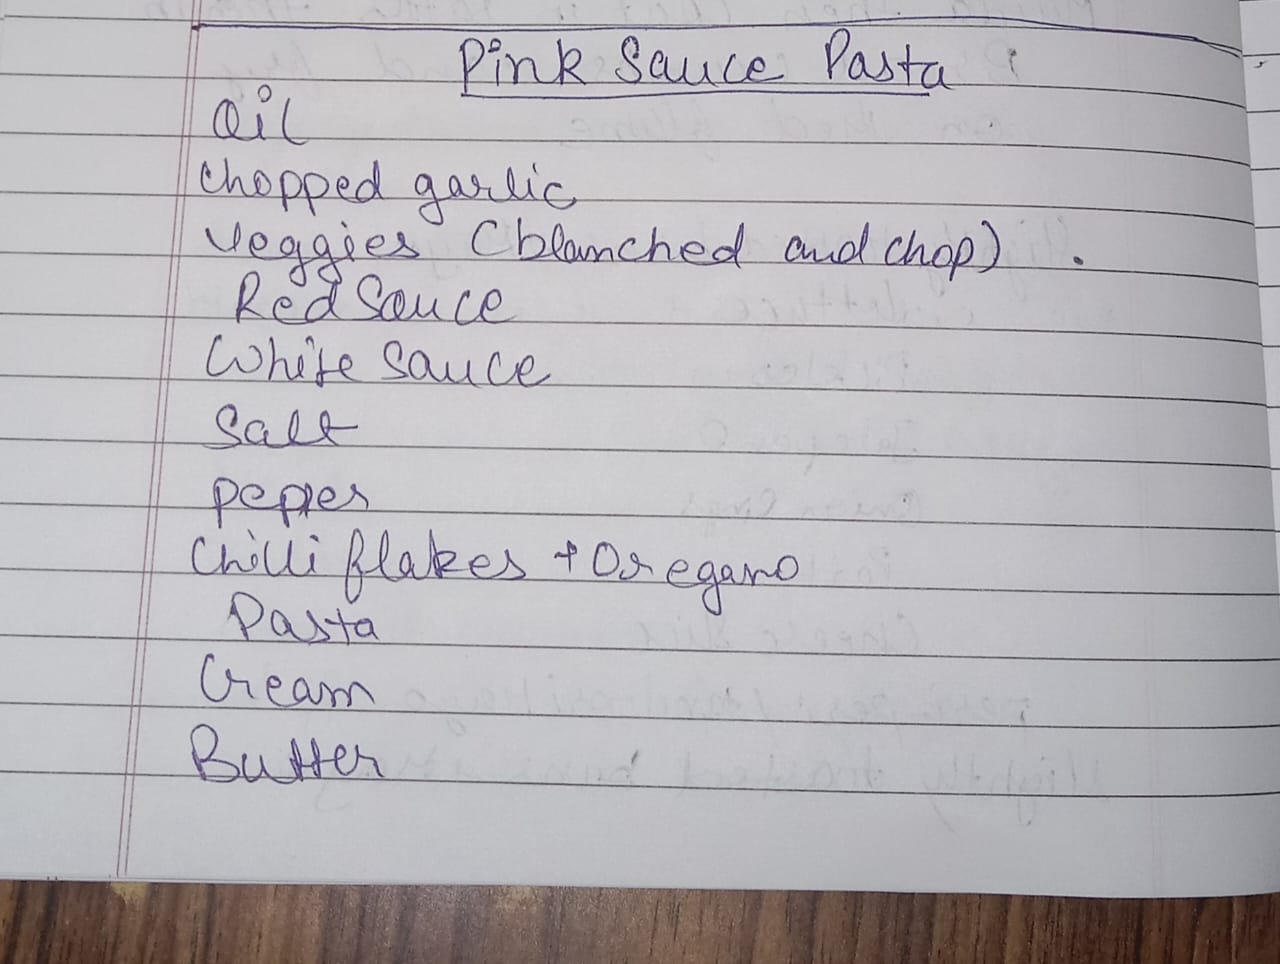 Pink Sauce Pasta
Oil
Chopped garlic
Veggies (blanched and chop) .
Red Sauce
White Sauce
Salt
pepper
Chilli flakes + Oregano
Pasta
Cream
Butter